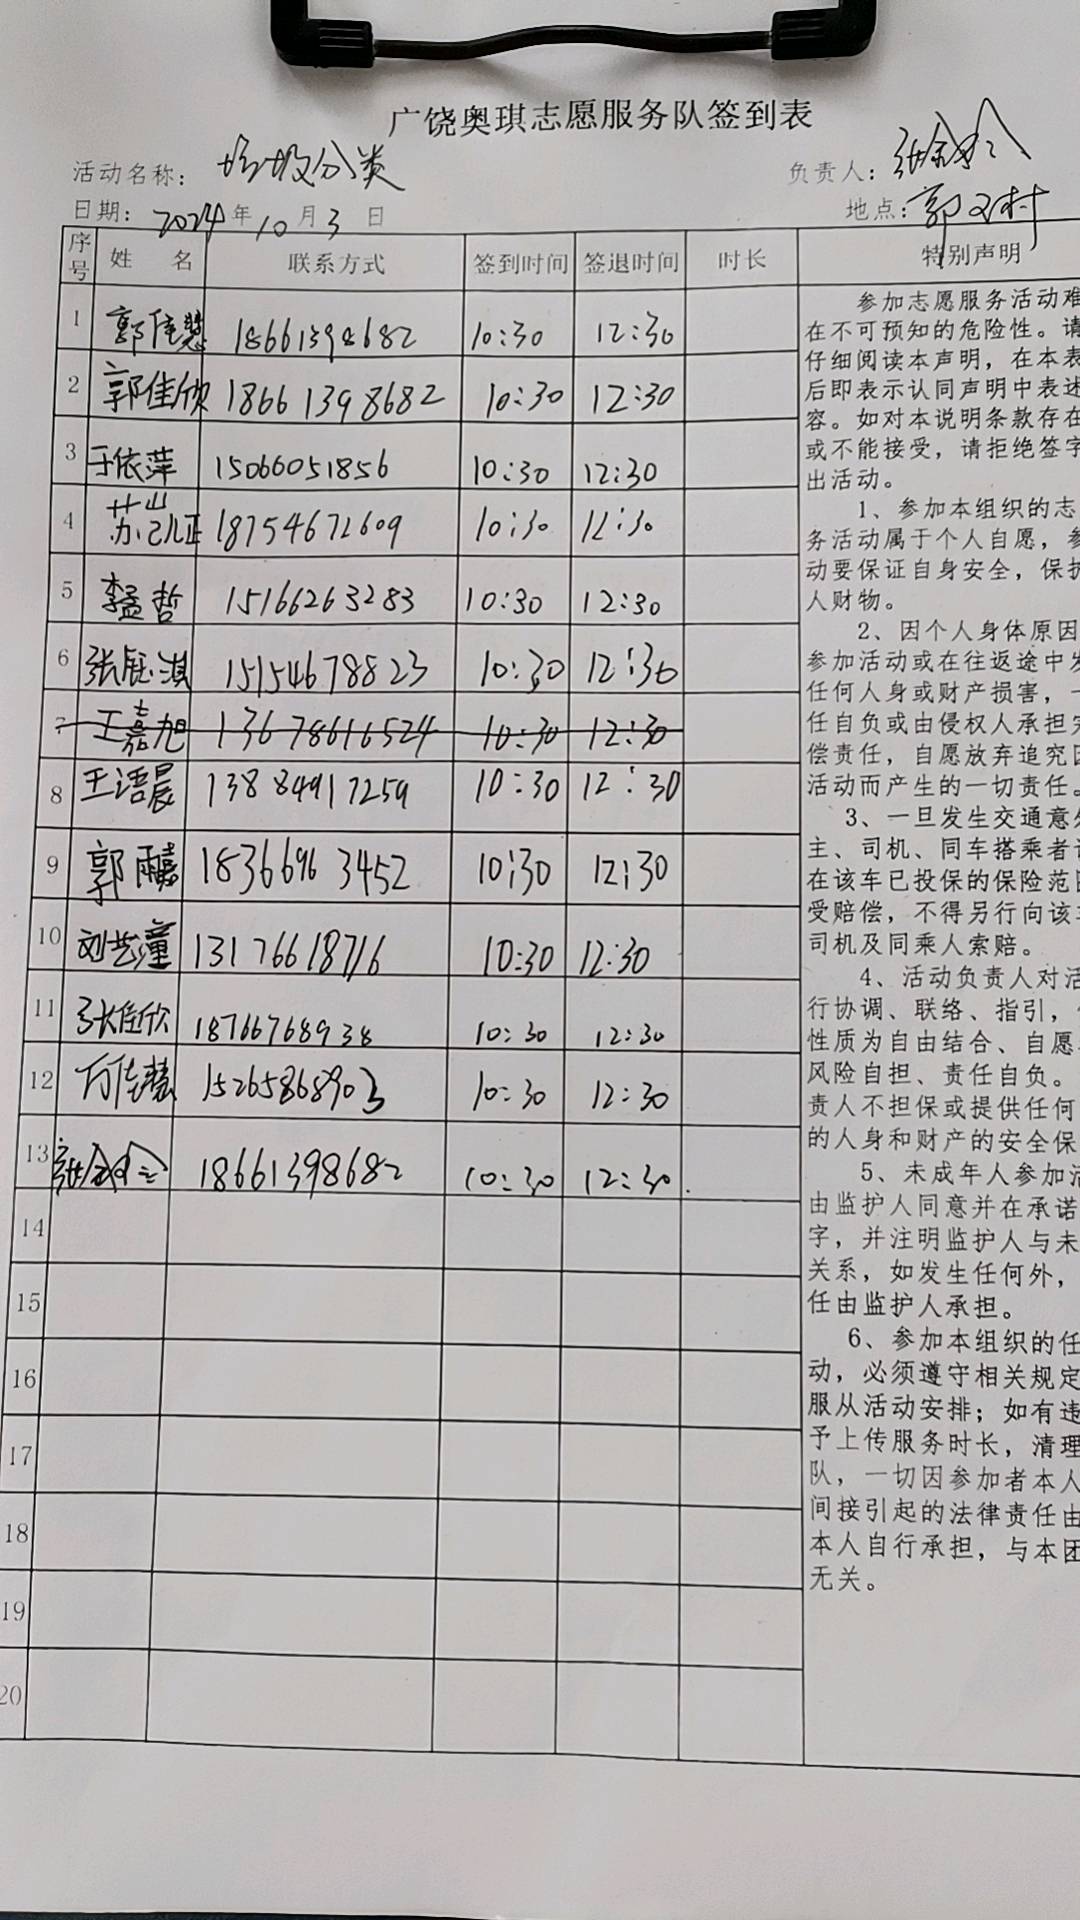 广饶奥琪志愿服务队签到表
活动名称： 垃圾分类 负责人：
日期： 2024 年 10 月 3 日 地点： 郭 村
序号 姓 名 联系方式 签到时间 签退时间 时长 特别声明
1 郭佳慧 18661398682 10:30 12:30
2 郭佳欣 18661398682 10:30 12:30
3 于依萍 15066051856 10:30 12:30
4 苏 正 18754672609 10:30 12:30
5 李孟哲 15166263283 10:30 12:30
6 张 淇 15154678823 10:30 12:30
7 王嘉旭 13678616524 10:30 12:30
8 王语晨 13884917259 10:30 12:30
9 郭雨 18366963452 10:30 12:30
10 刘艺潼 13176618716 10:30 12:30
11 张佳欣 18766768938 10:30 12:30
12 佳慧 15265868903 10:30 12:30
13 18661398682 10:30 12:30
14
15
16
17
18
19
20
参加志愿服务活动难
在不可预知的危险性。请
仔细阅读本声明，在本表
后即表示认同声明中表述
容。如对本说明条款存在
或不能接受，请拒绝签字
出活动。
1、参加本组织的志
务活动属于个人自愿，参
动要保证自身安全，保护
人财物。
2、因个人身体原因
参加活动或在往返途中发
任何人身或财产损害，一
任自负或由侵权人承担完
偿责任，自愿放弃追究因
活动而产生的一切责任。
3、一旦发生交通意外
主、司机、同车搭乘者
在该车已投保的保险范围
受赔偿，不得另行向该车
司机及同乘人索赔。
4、活动负责人对活
行协调、联络、指引，
性质为自由结合、自愿
风险自担、责任自负。
责人不担保或提供任何
的人身和财产的安全保
5、未成年人参加活
由监护人同意并在承诺
字，并注明监护人与未
关系，如发生任何外，
任由监护人承担。
6、参加本组织的任
动，必须遵守相关规定
服从活动安排；如有违
予上传服务时长，清理
队，一切因参加者本人
间接引起的法律责任由
本人自行承担，与本团
无关。